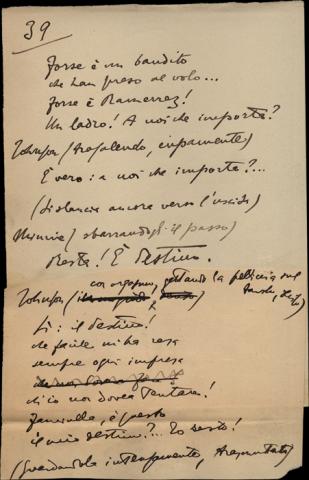 39
Forse è un bandito
che han preso al volo...
Forse è Ramerrez!
Un ladro! A noi che importa?
Johnson (trasalendo, cupamente)
È vero: a noi che importa?...
(si slancia ancora verso l'uscita)
Minnie (sbarrandogli il passo)
Resta! È destino.
con orgasmo, gettando la pelliccia sul
Johnson (
Sì: il destino!
che facile mi ha resa
sempre ogni impresa
ch'io noi dovea tentare!
Fanciulla, è questo
il mio destino?... Io resto!
(guardandola intensamente,